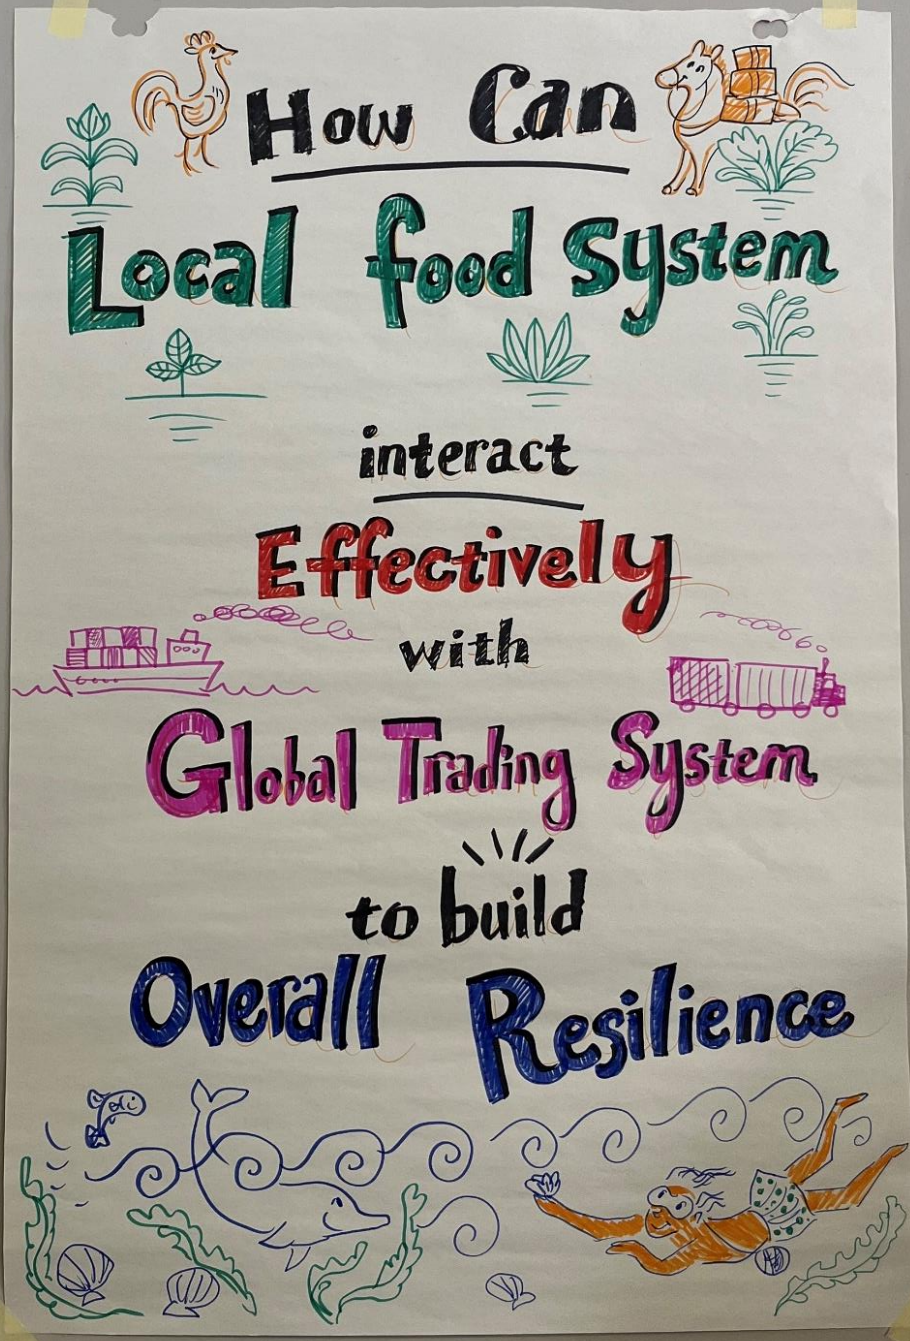 How Can
Local food System
interact
Effectively
with
Global Trading System
to build
Overall Resilience